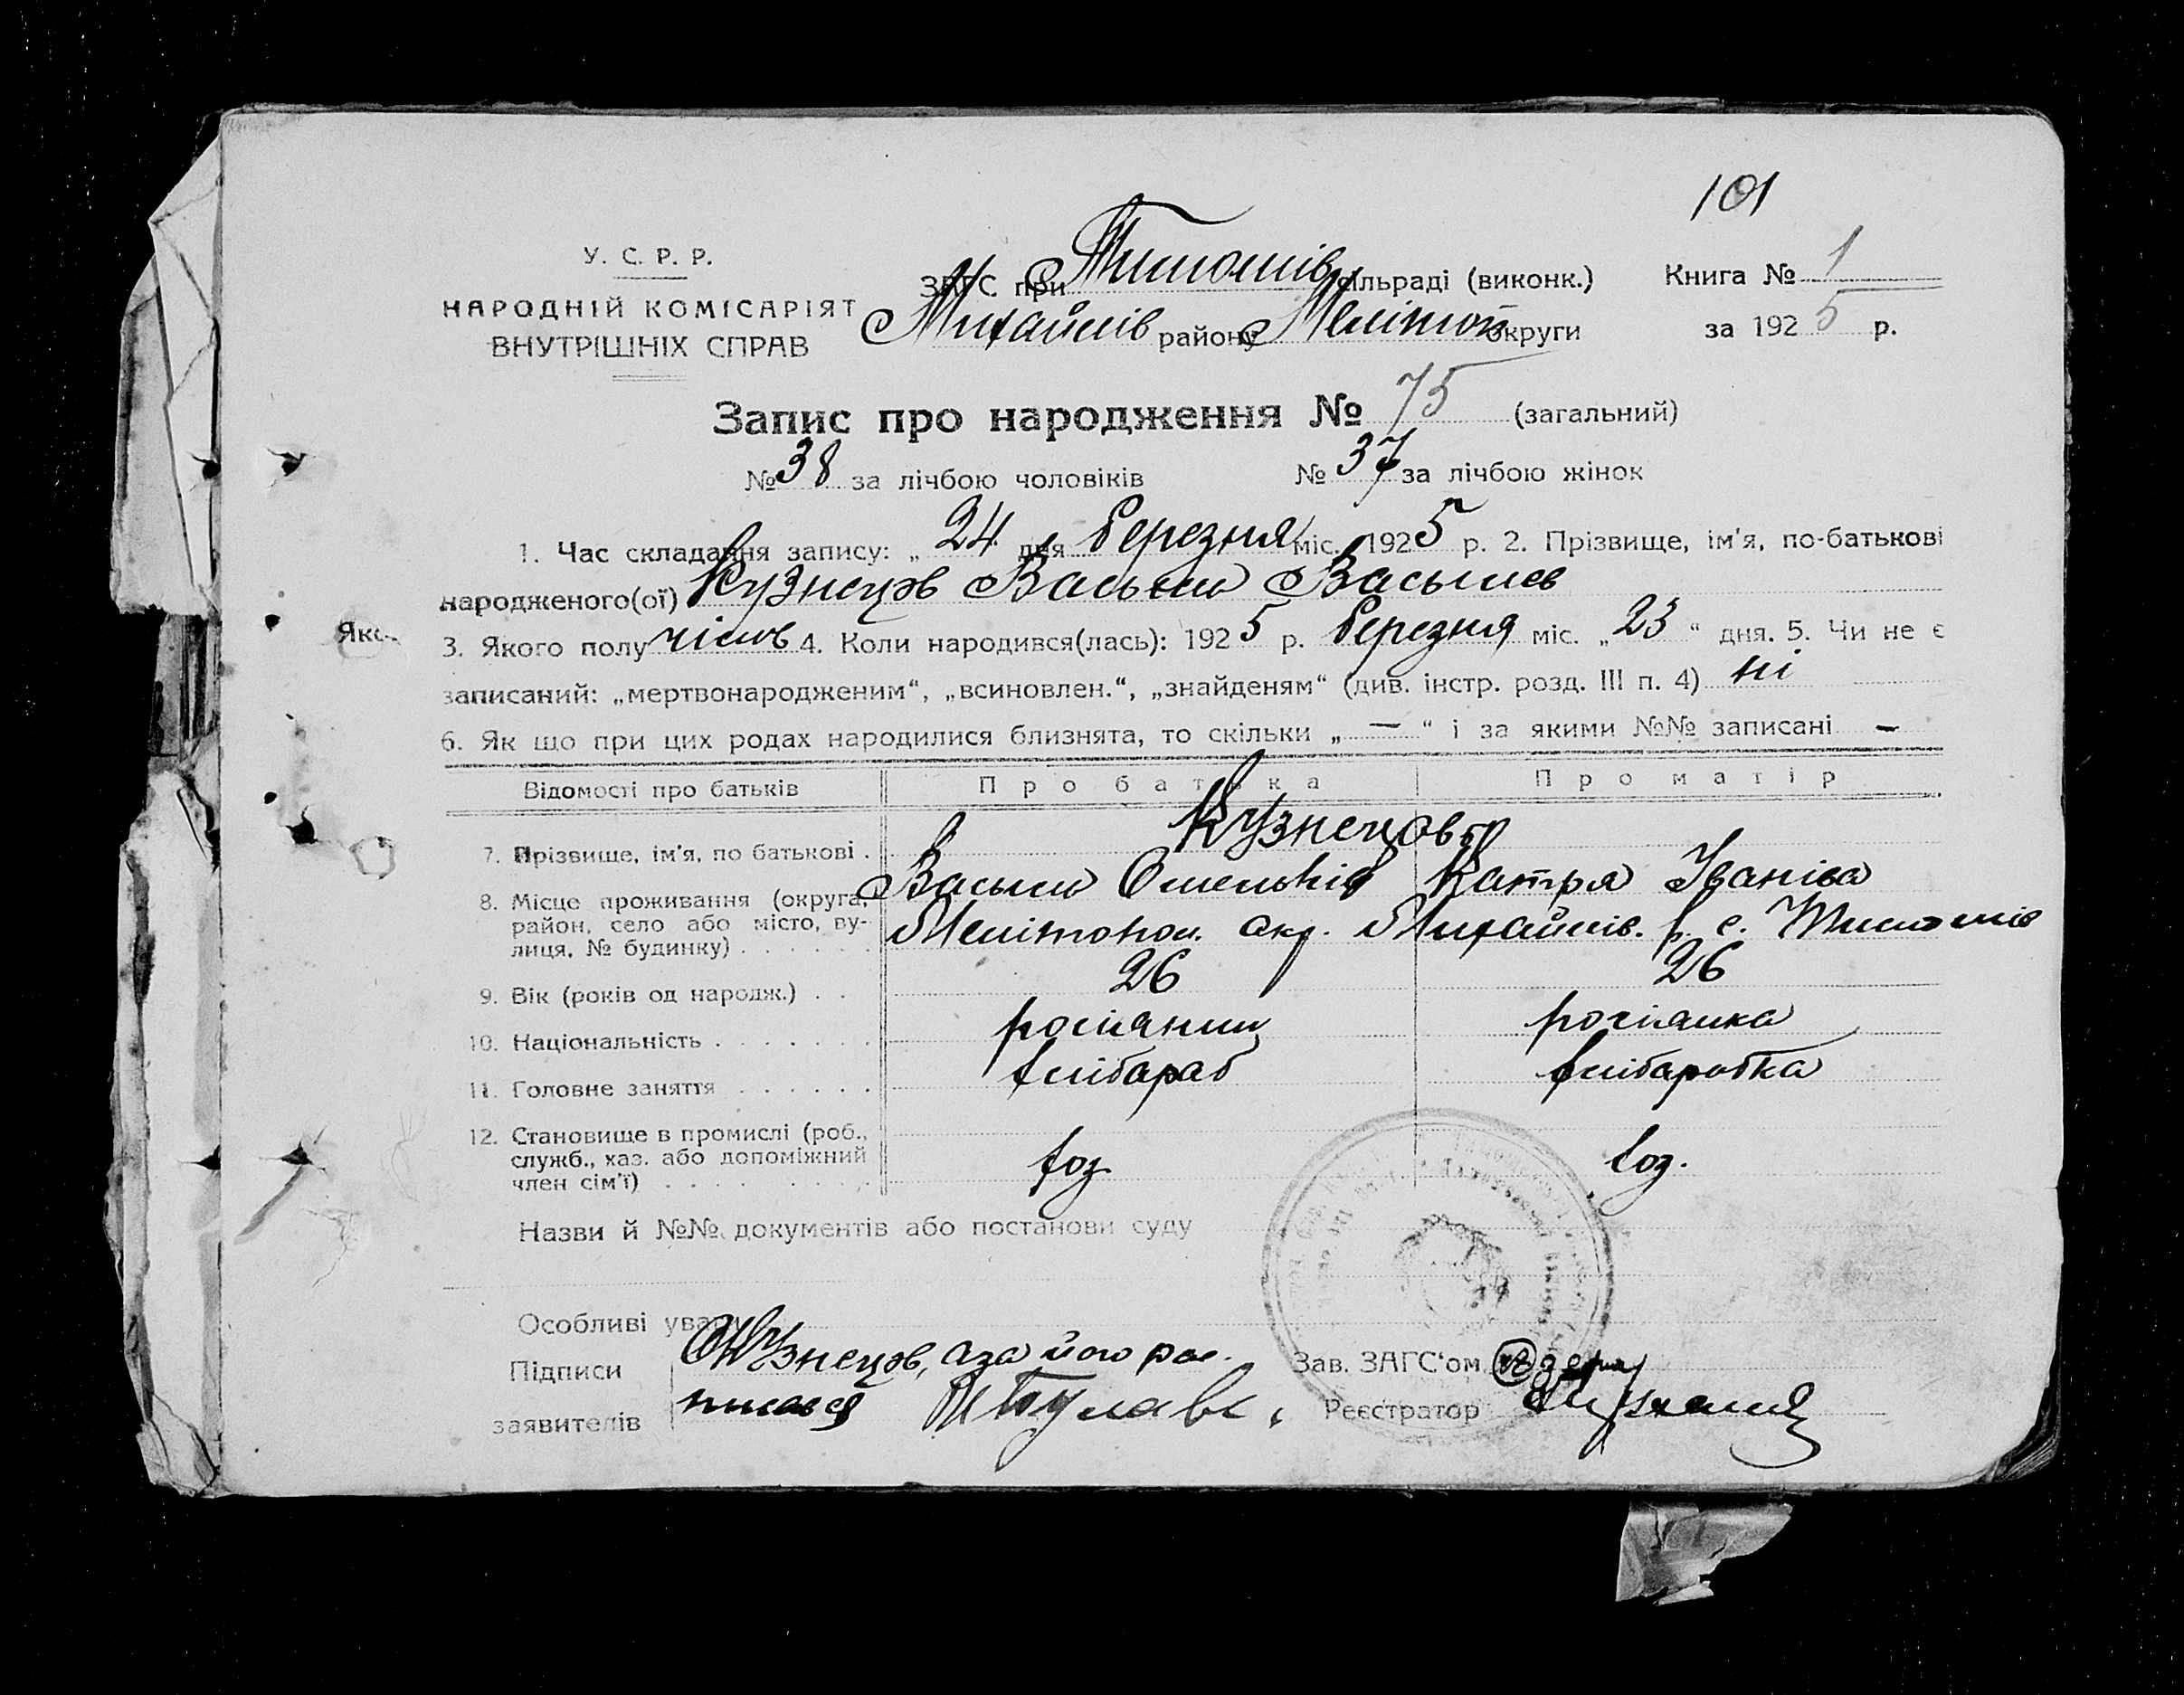 101
У. С. Р. Р.
НАРОДНІЙ КОМІСАРІЯТ
ВНУТРІШНІХ СПРАВ
ЗАГС при Тимошів сільраді (виконк.)
Михайлів району Мелітоп округи
Книга № 1
за 1925 р.
Запис про народження № 75 (загальний)
№ 38 за лічбою чоловіків № 37 за лічбою жінок
1. Час складання запису: „24 дня березня міс. 1925 р. 2. Прізвище, ім'я, по-батькові
народженого(ої) Кузнецов Василь Васылев
Яко
3. Якого полу чілов 4. Коли народився(лась): 1925 р. березня міс. „23“ дня. 5. Чи не є
записаний: „мертвонародженим“, „всиновлен.“, „знайденям“ (див. інстр. розд. III п. 4) ні
6. Як що при цих родах народилися близнята, то скільки „—“ і за якими №№ записані —
Відомості про батьків Про батька Про матір
7. Прізвище, ім'я, по батькові .
Кузнецовы
Василь Омельків Катря Іванівa
8. Місце проживання (округа,
район, село або місто, ву-
лиця, № будинку) . . . . . .
Мелітопол. окр. Михайлів. р. с. Тимошів
9. Вік (років од народж.) . . 26 26
10. Національність . . . . . . . росіянин росіянка
11. Головне заняття . . . . . . хлібараб хлібаробка
12. Становище в промислі (роб.,
служб., хаз. або допоміжний
член сім'ї) . . . . . . . . .
хоз. хоз.
Назви й №№ документів або постанови суду
Особливі уваги
Підписи
заявителів
Кузнецов, а за його рос.
писався
Зав. ЗАГС'ом
Реєстратор